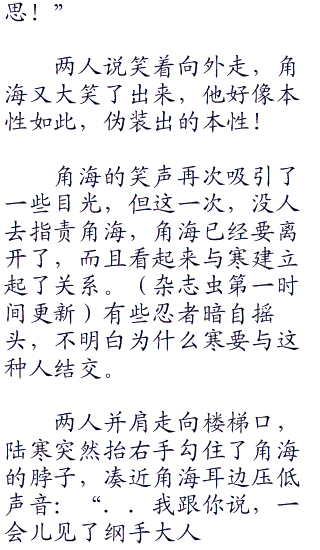 思！”
两人说笑着向外走，角
海又大笑了出来，他好像本
性如此，伪装出的本性！
角海的笑声再次吸引了
一些目光，但这一次，没人
去指责角海，角海已经要离
开了，而且看起来与寒建立
起了关系。（杂志虫第一时
间更新）有些忍者暗自摇
头，不明白为什么寒要与这
种人结交。
两人并肩走向楼梯口，
陆寒突然抬右手勾住了角海
的脖子，凑近角海耳边压低
声音：“．．我跟你说，一
会儿见了纲手大人